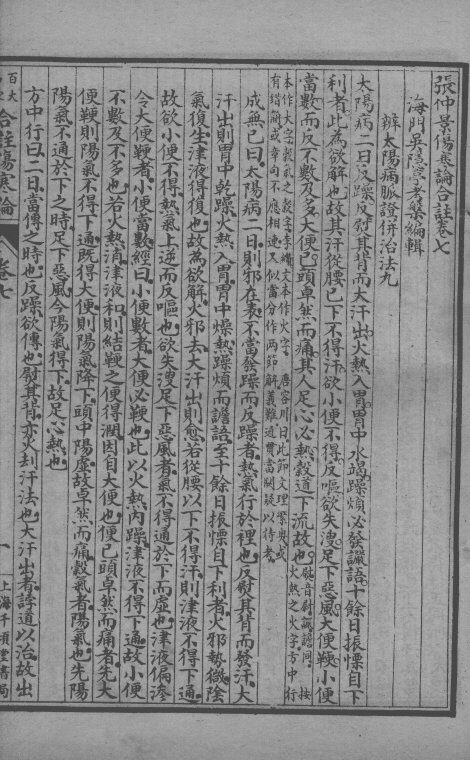 張仲景傷寒論合註卷七
海門吳隱亭考槃編輯
辨太陽病脈證併治法九
太陽病二日反躁反熨其背而大汗出火熱入胃胃中水竭躁煩必發讝語十餘日振慄自下
利者此為欲解也故其汗從腰已下不得汗欲小便不得反嘔欲失溲足下惡風大便鞕小便
當數而反不數及多大便已頭卓然而痛其人足心必熱穀道下流故也 熨音尉讝譫同 按火熱之火字方中行
本作大字穀氣之穀字李纘文本作火字 唐容川曰此節文理繁奧或
有錯簡或章句不應相連又似當分作兩節解義難通貫當闕疑以待考
成無已曰太陽病二日則邪在表不當發躁而反躁者熱氣行於裡也反熨其背而發汗大
汗出則胃中乾躁火熱入胃胃中燥熱躁煩而譫語至十餘日振慄自下利者火邪勢微陰
氣復生津液得復也故為欲解火邪去大汗出則愈若從腰以下不得汗則津液不得下通
故欲小便不得熱氣上逆而反嘔也欲失溲足下惡風者氣不得通於下而虛也津液偏滲
令大便鞕者小便當數經曰小便數者大便必鞕也此以火熱內躁津液不得下通故小便
不數及不多也若火熱消津液和則結鞕之便得潤因自大便也便已頭卓然而痛者先大
便鞕則陽氣不得下通既得大便則陽氣降下頭中陽虛故卓然而痛穀氣者陽氣也先陽
陽氣不通於下之時足下惡風今陽氣得下故足心熱也
方中行曰二日當傳之時也反躁欲傳也熨其背亦火刦汗法也大汗出者誖道以治故出
百大名家合註傷寒論
卷七
一
上海千頃堂書局